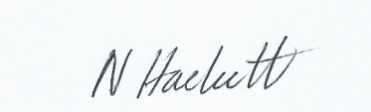 N Hackett